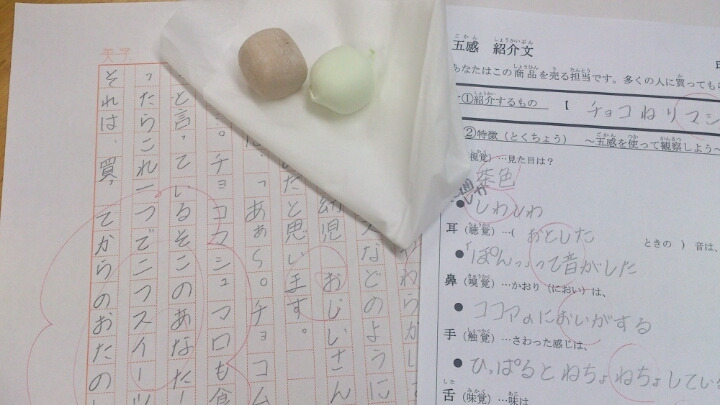 五感 紹介文
あなたはこの商品を売る担当です。多くの人に買っても
①紹介するもの 【 チョコねりマシ
②特徴(とくちょう) ~五感を使って観察しよう~
視覚)…見た目は?
茶色
● しわしわ
耳(聴覚)…( おとした ときの ) 音は、
●「ぽんっ」って音がした
鼻(嗅覚)…かおり(におい)は、
● ココアのにおいがする
手(触覚)…さわった感じは、
● ひっぱるとねちょねちょしてい
舌(味覚)…味は
やわらかし
などのように
幼児 おじいさん
いたと思います。
「あぁ~。チョコム
。チョコマシュマロも食
と言っているそこのあなた!
ったらこれ一つで二つスイーツ
それは、買ってからのおたの